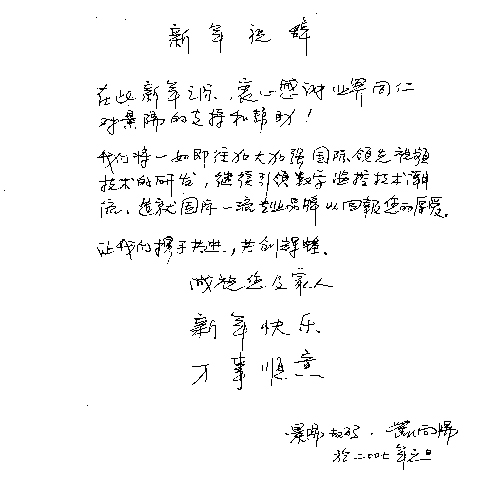 新年祝辞
在此新年之际，衷心感谢业界同仁
对景阳的支持和帮助！
我们将一如即往加大加强国际领先视频
技术的研发，继续引领数字监控技术潮
流，造就国际一流专业品牌以回报您的厚爱。
让我们携手共进，共创辉煌。
诚祝您及家人
新年快乐
万事顺意
景阳 ． 向阳
于二00七年元旦